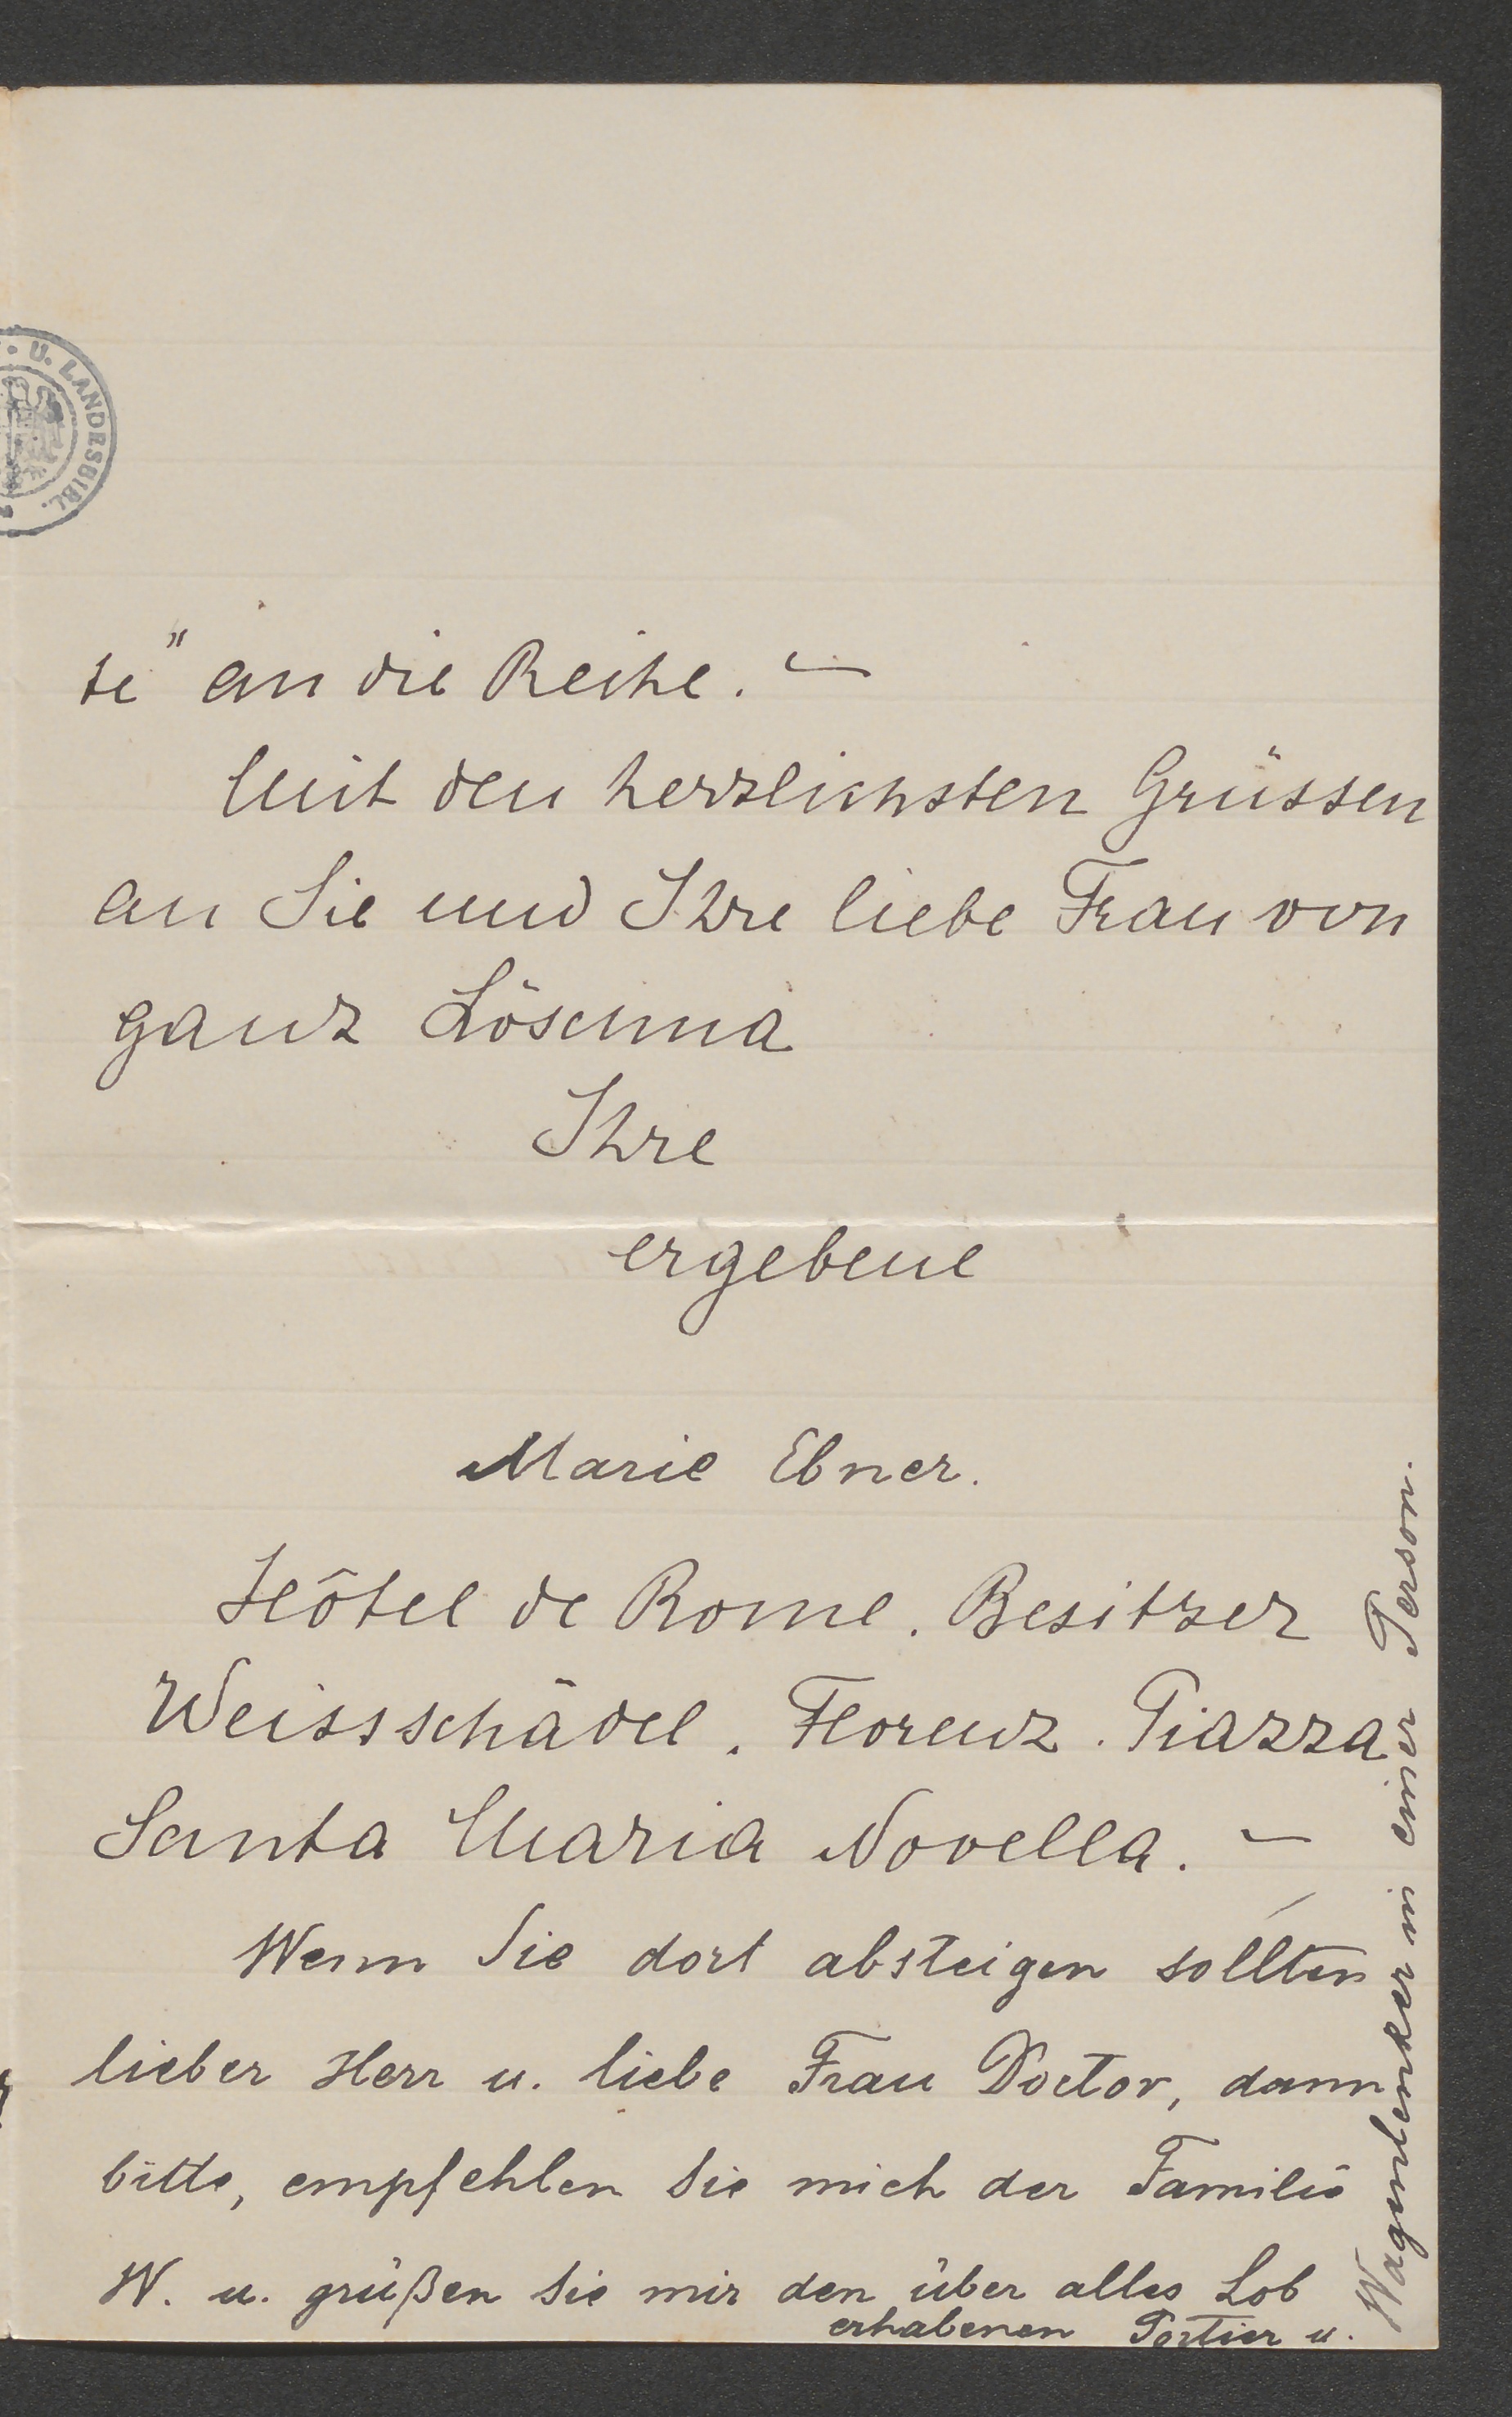 U. LANDESBIBL.
te" an die Reihe. –
Mit den herzlichsten Grüssen
an Sie und Ihre liebe Frau von
ganz Löschna
Ihre
ergebene
Marie Ebner.
Hôtel de Rome. Besitzer
Weissschädel. Florenz. Piazza
Santa Maria Novella. –
Wenn Sie dort absteigen sollten
lieber Herr u. liebe Frau Doctor, dann
bitte, empfehlen Sie mich der Familie
W. u. grüßen Sie mir den über alles Lob
erhabenen Portier u.
Wagenlenker in einer Person.